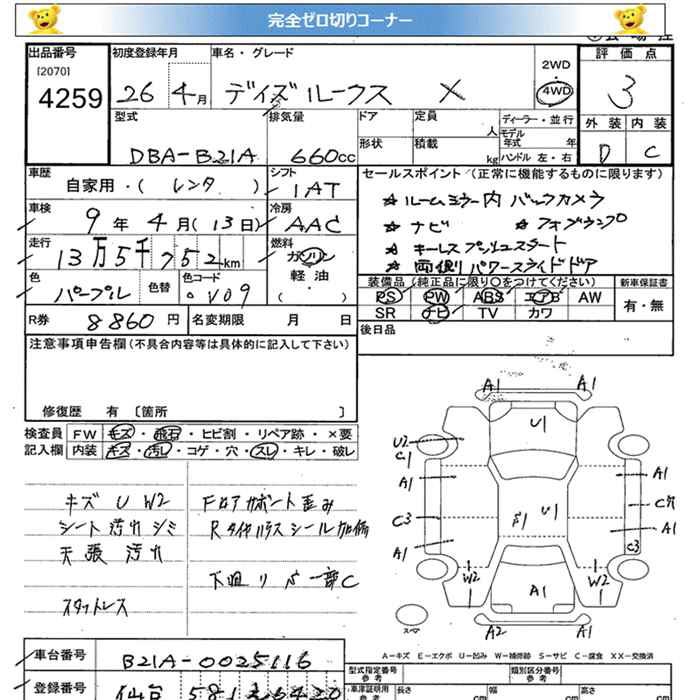 完全ゼロ切りコーナー
出品番号 初度登録年月 車名・グレード 2WD 評価点
[2070]
4259 26 4月 デイズルークス X 4WD 3
型式 排気量 ドア 定員 人 ディーラー・並行 外装 内装
DBA-B21A 660cc 形状 積載 kg モデル年式 年 ハンドル 左・右 D C
車歴 シフト セールスポイント (正常に機能するものに限ります)
自家用・( レンタ ) IAT ★ルームミラー内 バックカメラ
車検 冷房 ★ナビ
9年 4月(13日) AAC ★キーレスプッシュスタート
走行 燃料 ★両側パワースライドドア
13万5千752km ガソリン
軽油
・( )
色 色替 色コード 装備品 (純正品に限り○をつけてください) 新車保証書
パープル V09 PS PW ABS エアB AW 有・無
SR ナビ TV カワ
R券 8860円 名変期限 月 日 後日品
注意事項申告欄(不具合内容等は具体的に記入して下さい)
修復歴 有 〔箇所 〕
検査員 FW キズ・飛石・ヒビ割・リペア跡・×要
記入欄 内装 キズ・汚レ・コゲ・穴・スレ・キレ・破レ
キズ U W2 フロアサポート歪み
シート汚れ シミ
天張汚れ
下廻り 一部C
スタットレス
A1 A1
U1
U2
C1
A1 A1
C3 U1
A1 A1
C3
W2 W2
A1
スペア A2 A1
A-キズ E-エクボ U-凹み W-補修跡 S-サビ C-腐食 XX-交換済
車台番号 B21A-0025116 型式指定番号 類別区分番号
登録番号 仙台 581 車庫証明用 長さ cm 幅 cm 高さ cm